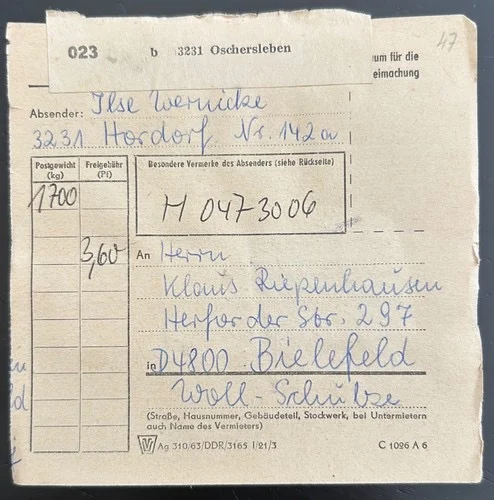 023 b 3231 Oschersleben
47
um für die
eimachung
Absender: Ilse Wernicke
3231 Hordorf Nr. 142a
Postgewicht (kg)
Freigebühr (Pf)
1700
3,60
Besondere Vermerke des Absenders (siehe Rückseite)
H 0473006
An Herrn
Klaus Riepenhausen
Herforder Str. 297
in D4800 Bielefeld
Woll-Schulze
(Straße, Hausnummer, Gebäudeteil, Stockwerk, bei Untermietern
auch Name des Vermieters)
Ag 310/63/DDR/3165 I/21/3
C 1026 A 6